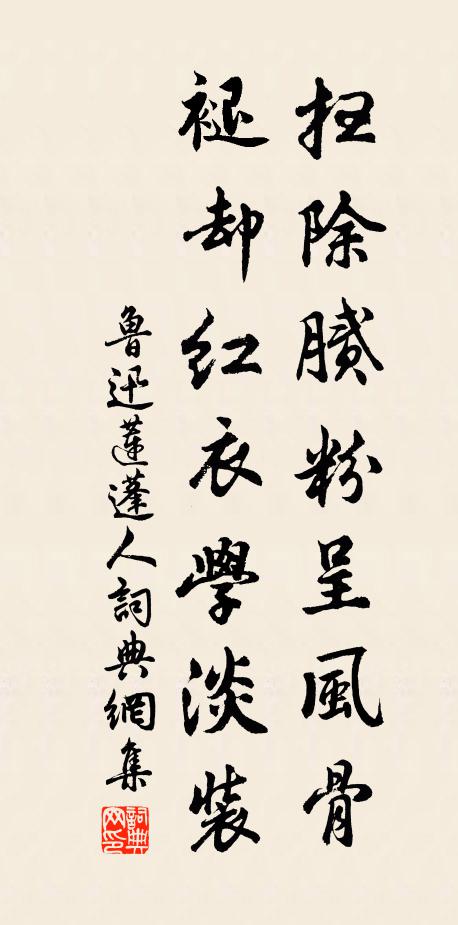 扫除腻粉呈風骨
褪却红衣学淡裝
魯迅蓮蓬人詞典網集
詞典网印